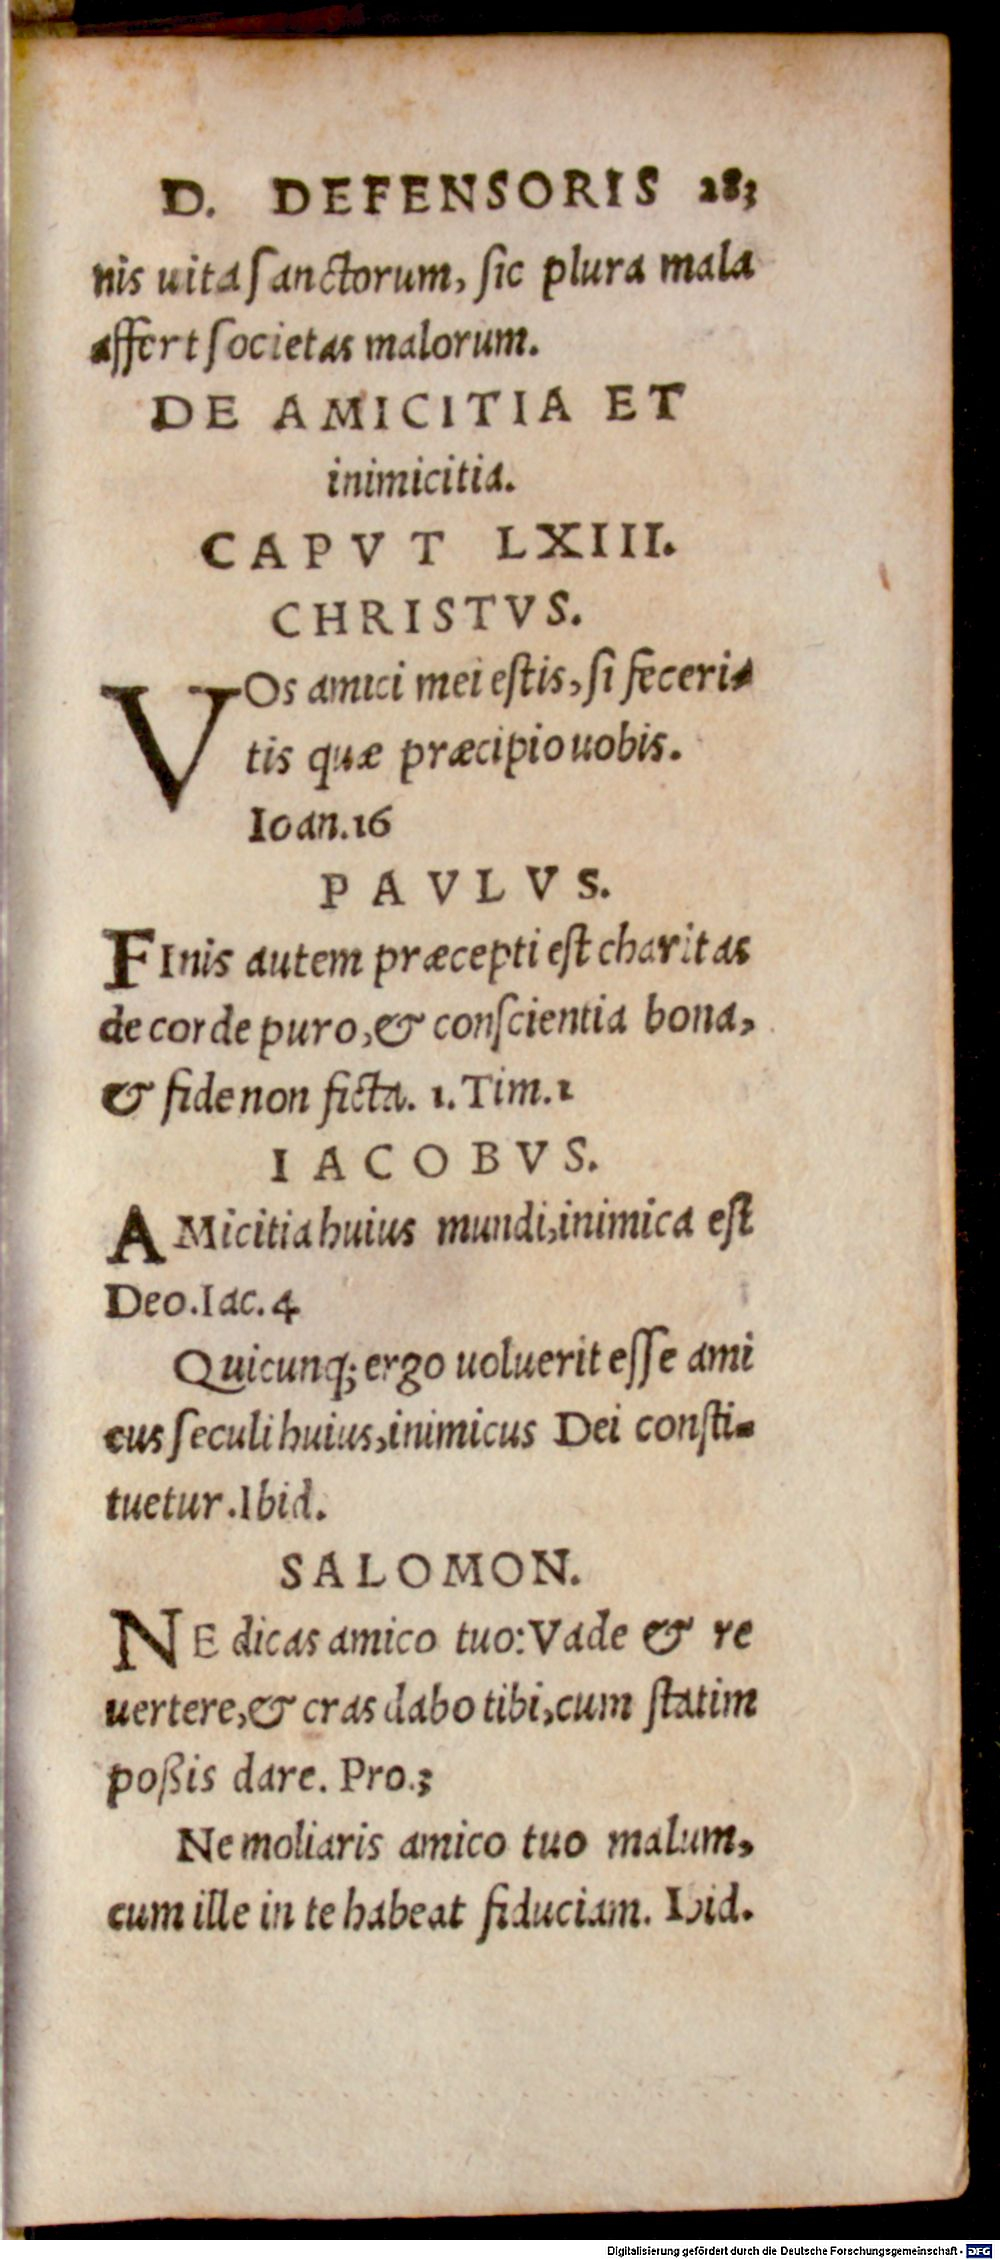 D. DEFENSORIS 283
nis uita sanctorum, sic plura mala
affert societas malorum.
DE AMICITIA ET
inimicitia.
CAPVT LXIII.
CHRISTVS.
VOs amici mei estis, si feceri-
tis quæ præcipio uobis.
Ioan.16
PAVLVS.
FInis autem præcepti est charitas
de corde puro, & conscientia bona,
& fide non ficta. 1. Tim.1
IACOBVS.
AMicitia huius mundi, inimica est
Deo. Iac.4
Quicunq; ergo uoluerit esse ami
cus seculi huius, inimicus Dei consti-
tuetur. Ibid.
SALOMON.
NE dicas amico tuo: Vade & re
uertere, & cras dabo tibi, cum statim
poßis dare. Pro.3
Ne moliaris amico tuo malum,
cum ille in te habeat fiduciam. Ibid.
Digitalisierung gefördert durch die Deutsche Forschungsgemeinschaft - DFG